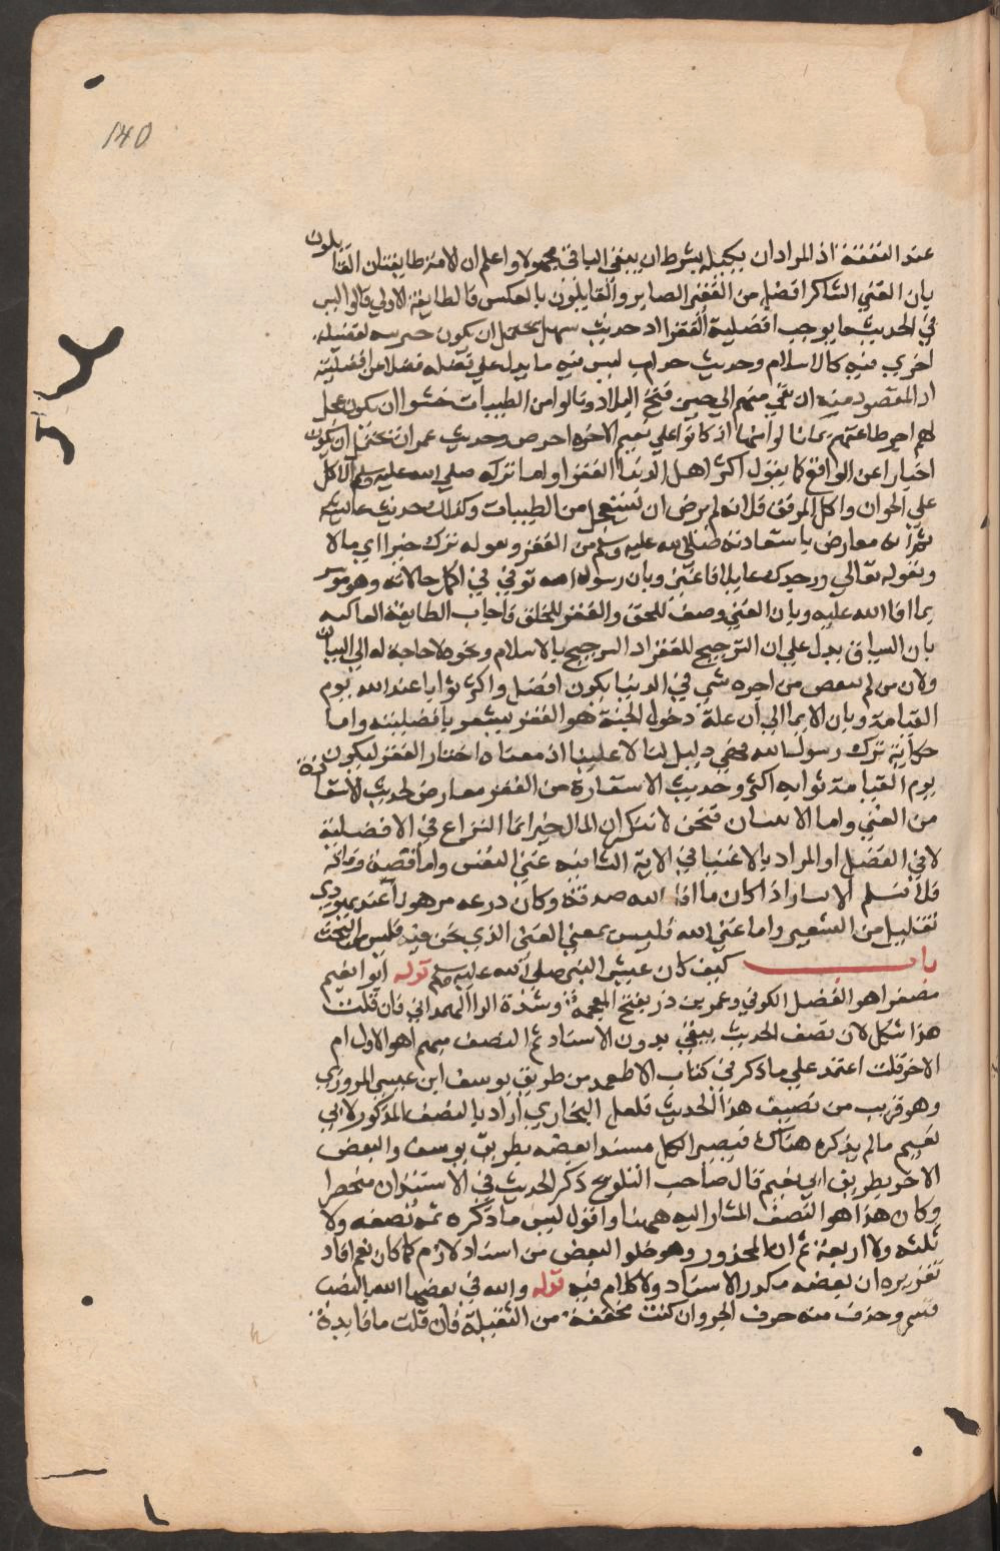 140
عند النفقة اذ المراد ان بكيله بشرط ان يبقى الباقي مجهولا واعلم ان للامة طايفتان القايلون
بان الغني الشاكر افضل من الفقير الصابر والقايلون بالعكس فالطايفة الاولي قالوا ليس
في الحديث ما يوجب افضلية الفقرا اذ حديث سهل يحتمل ان يكون خيريته لفضيلة
اخري فيه كالاسلام وحديث خباب ليس فيه ما يدل علي تفضله فضلا عن افضليته
اذ المقصود منه ان من بقي منهم الي حين فتح البلاد ونالوا من الطيبات خشوا ان يكون عجل
لهم اجر طاعتهم بما نالوا منها اذ كانوا علي نعيم الاخرة احرص وحديث عمران يحتمل ان يكون
اخبارا عن الواقع كما يقول اكثر اهل الدنيا الفقرا واما تركه صلي الله عليه وسلم الاكل
علي الخوان واكل المرقق فلانه لم يرض ان يستعجل من الطيبات وكذلك حديث عائشة
ثم انه معارض باستعاذته صلي الله عليه وسلم من الفقر وبقوله ترك خيرا اي مالا
وبقوله تعالي ووجدك عايلا فاغني وبان رسول الله توفي في اكمل حالاته وهو موسر
بما افا الله عليه وبان الغني وصف للحق والفقر للخلق فاجاب الطايفة الثانية
بان السياق يدل علي ان الترجيح للفقر اذ الترجيح بالاسلام ونحوه لا حاجة له الي البيان
ولان من لم ينقص من اجره شي في الدنيا يكون افضل واكثر ثوابا عند الله يوم
القيامة وبان الايما الي ان علة دخول الجنة هو الفقر يشعر بافضليته واما
حكاية ترك رسول الله فهي دليل لنا لا علينا اذ معناه اختار الفقر ليكون
يوم القيامة ثوابه اكثر وحديث الاستعاذة من الفقر معارض لحديث الاستعاذة
من الغني واما الايتان فنحن لا ننكر ان المال خير انما النزاع في الافضلية
لا في الفضل او المراد بالاغنيا في الاية الثانية غني النفس واما قصة وفاته
فلا نسلم الايسار اذا كان ما افا الله صدقة وكان درعه مرهونا عند يهودي
بقليل من الشعير واما غني الله فليس بمعني الغني الذي نحن فيه فليس من البحث
باب كيف كان عيش النبي صلي الله عليه وسلم قوله ابو نعيم
مصغرا هو الفضل الكوفي وعمر بن ذر بفتح المعجمة وشدة الرا الهمداني فان قلت
هذا مشكل لان نصف الحديث يبقي بدون الاسناد ثم النصف مبهم اهو الاول ام
الاخر قلت اعتمد علي ما ذكر في كتاب الاطعمة من طريق يوسف ابن عيسي المروزي
وهو قريب من نصف هذا الحديث فلعل البخاري اراد بالنصف المذكور لابي
نعيم ما لم يذكره هناك فيصير الكل مسندا بعضه بطريق يوسف والبعض
الاخر بطريق ابي نعيم قال صاحب التلويح ذكر الحديث في الاستئذان مختصرا
وكان هذا هو النصف المشار اليه ههنا واقول ليس ما ذكره ثمه نصفه ولا
ثلثه ولا اربعة ثم ان المحذور وهو خلو البعض من اسناد لازم كما كان نعم افاد
تقريره ان بعضه مكرر الاسناد ولا كلام فيه قوله والله في بعضها الله بالنصب
قسم وحذف منه حرف الجر وان كنت مخففة من الثقيلة فان قلت ما فايدة